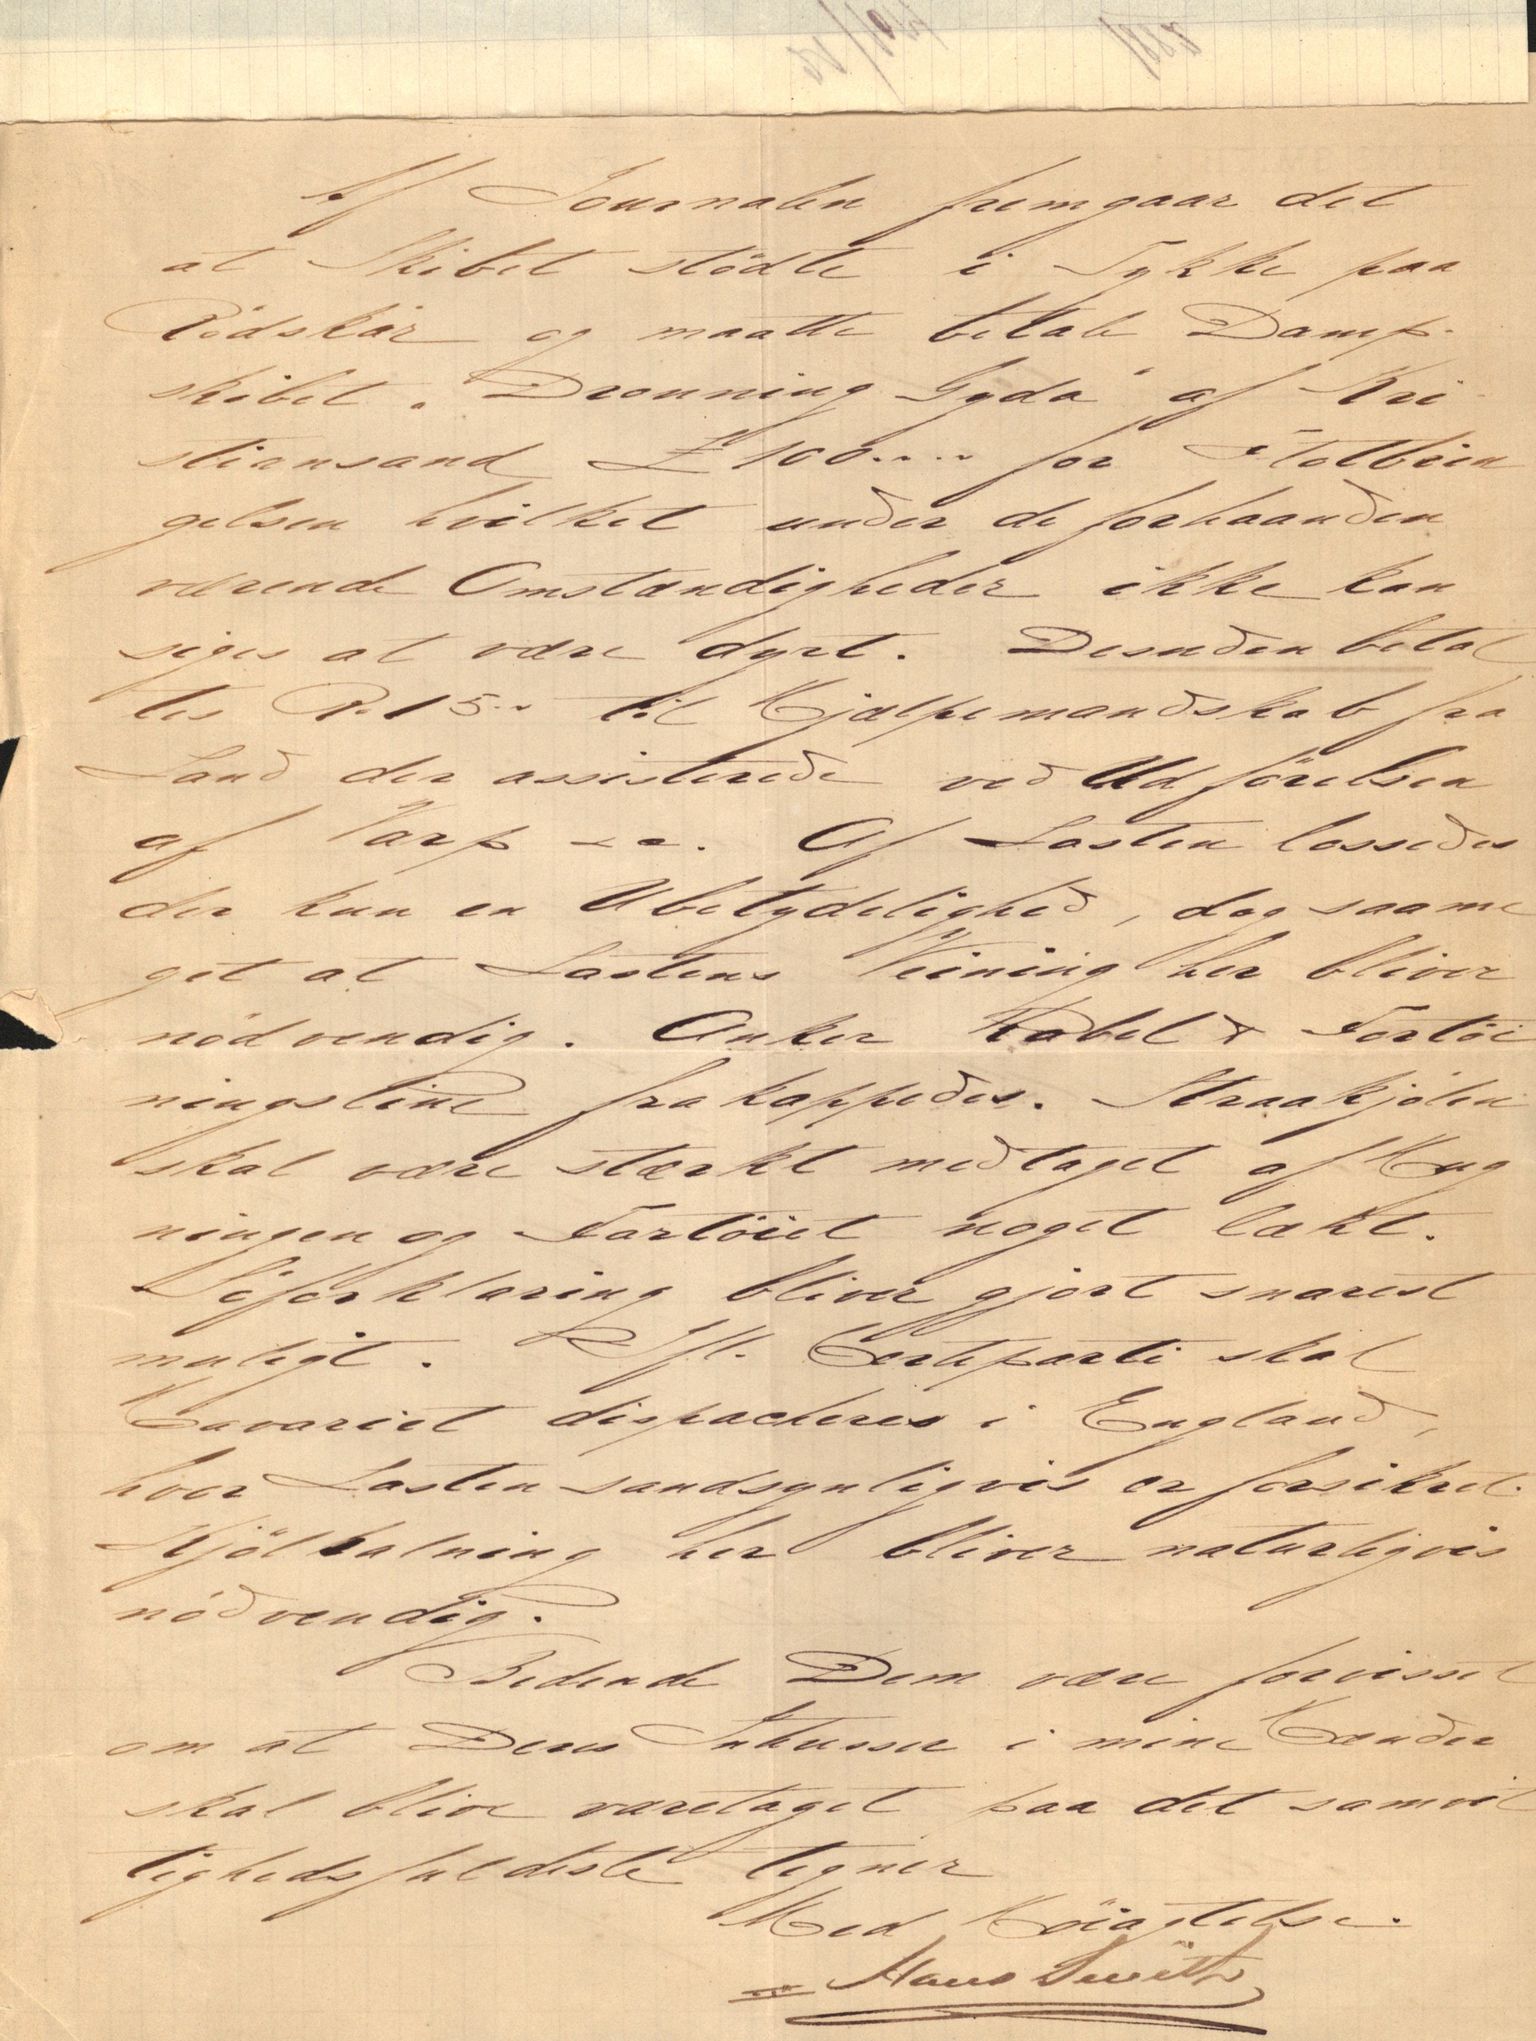 Af Journalen fremgaar det
at Skibet stødte i Tykke paa
Rødskär og maatte betale Damp-
skibet "Dronning Gyda" af Kri
stiansand £ 100.... for Flotbrin
gelsen hvilket under de forhaanden
værende Omstændigheder ikke kan
siges at være dyrt. Desuden betal
tes R. 15.. til Hjælpemandskab fra
Land der assisterede ved Udførelsen
af Varp. Af Lasten lossedes
der kun en Ubetydelighed, dog saame
get at Lastens Veining her bliver
nødvendig. Anker Kabel & Fortøi
ningsline frakappedes. Straakjølen
skal være stærkt medtaget af Hug
ningen og Fartøiet noget lækt.
Søforklaring bliver gjort snarest
muligt. Ifl. Certeparti skal
Havariet dispacheres i England,
hvor Lasten sandsynligvis er forsikret.
Kjølhalning her bliver naturligvis
nødvendig.
Bedende Dem være forvisset
om at Deres Intresser i mine Hænder
skal blive varetaget paa det samvit
tighedsfuldeste tegner
Med Høiagtelse.
Hans Smith